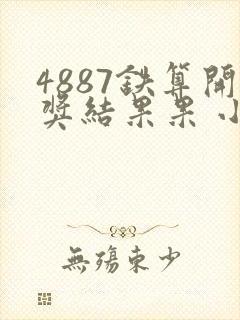 4887鉄算開
奖結果果小
無殤東少